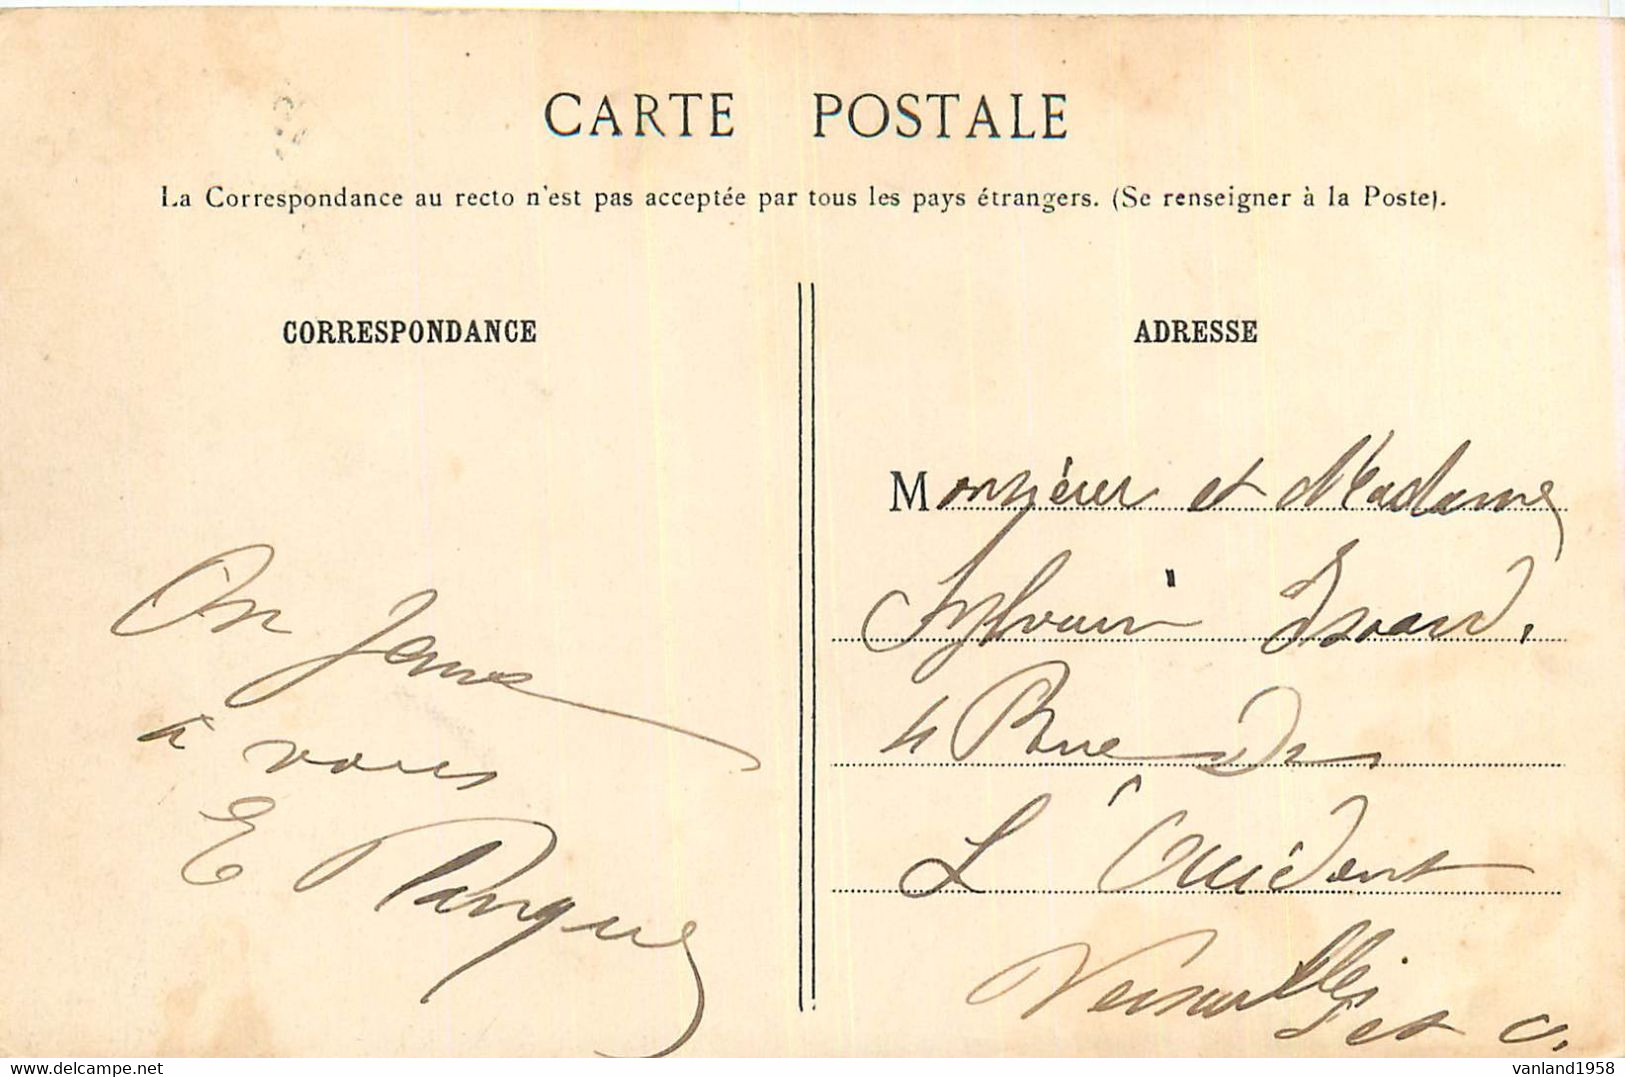 CARTE POSTALE
La Correspondance au recto n'est pas acceptée par tous les pays étrangers. (Se renseigner à la Poste).
CORRESPONDANCE
à vous
E
ADRESSE
Monsieur et Madame
Sylvain Isoard,
4 Rue De
L'Occident
Versailles
S et O.
vanland1958